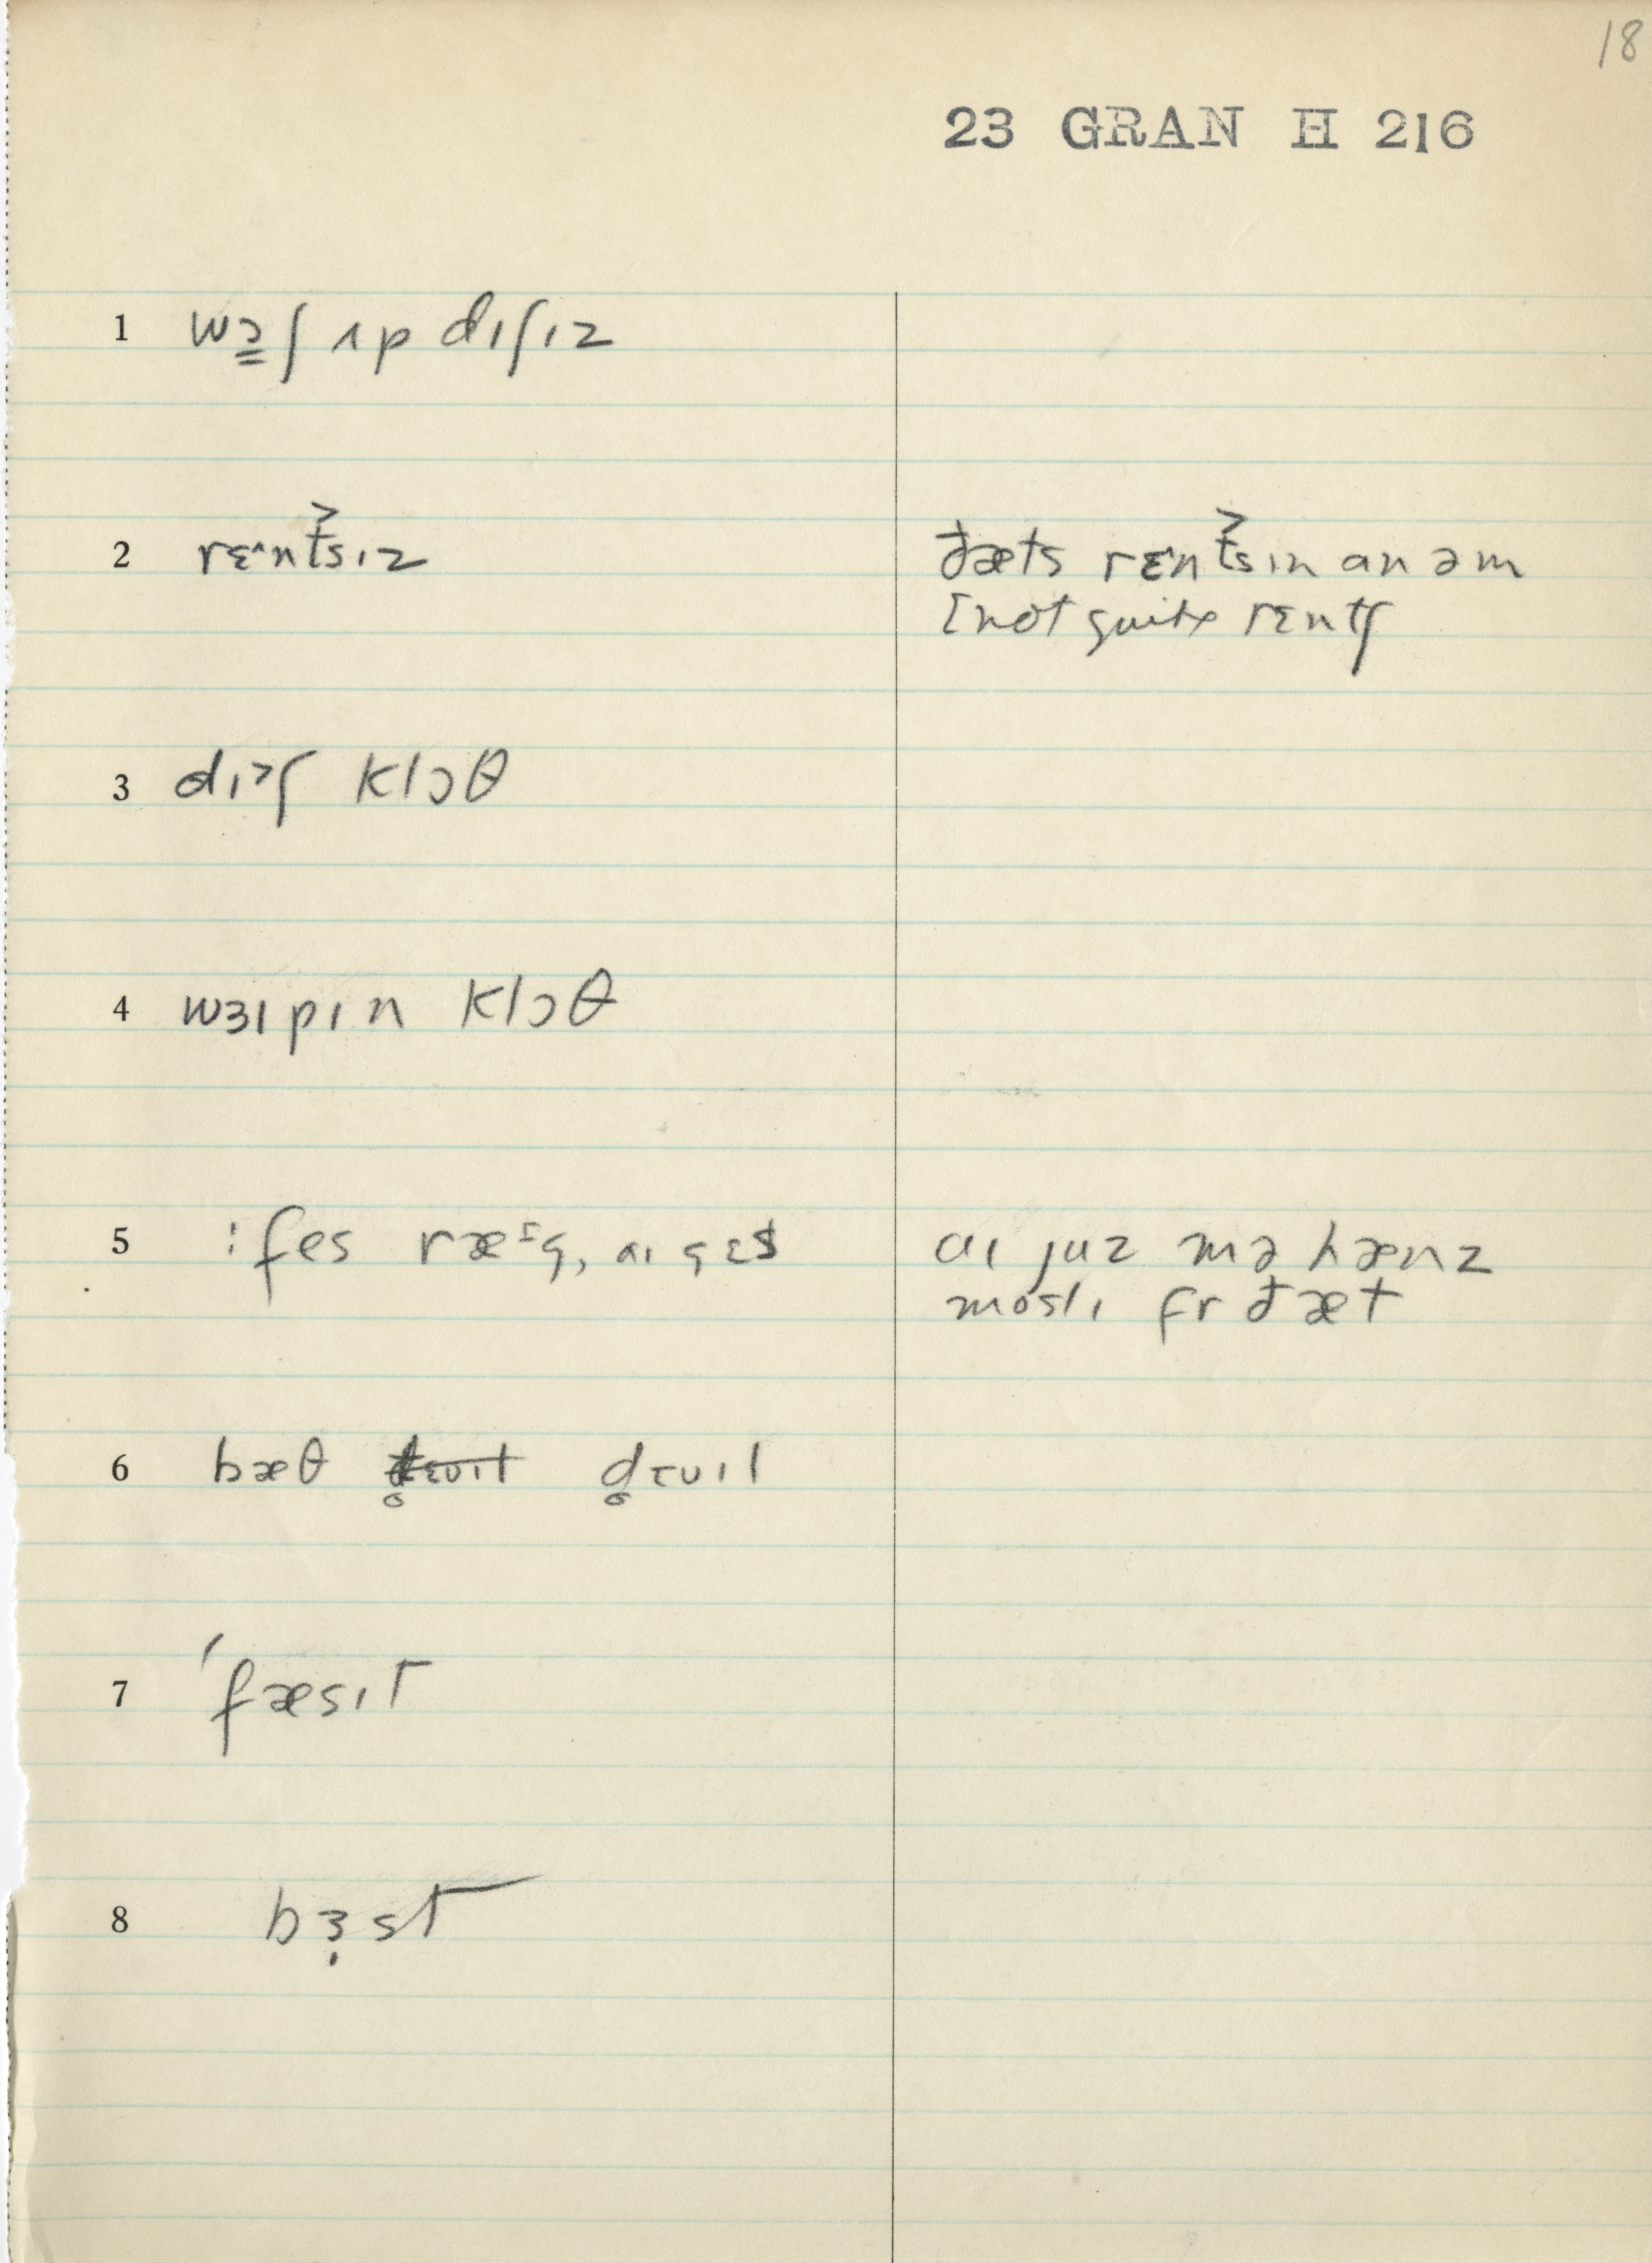 18
23 GRAN H 216
1 wɔ̳ʃ ʌp dɪʃɪz
2 rɛˆnt͡s˃ɪz
ðæts rɛˆnt͡s˃ɪn an əm
[not quite rɛntʃ
3 dɪ˃ʃ klɔθ
4 wɜɪpɪn klɔθ
5 :fes ræᵋg, aɪ gɛs
aɪ juz mə hænz
mosli fr ðæt
6 bæθ d̥ɛvɪl
7 ˈfæsɪt
8 bɜ̣st